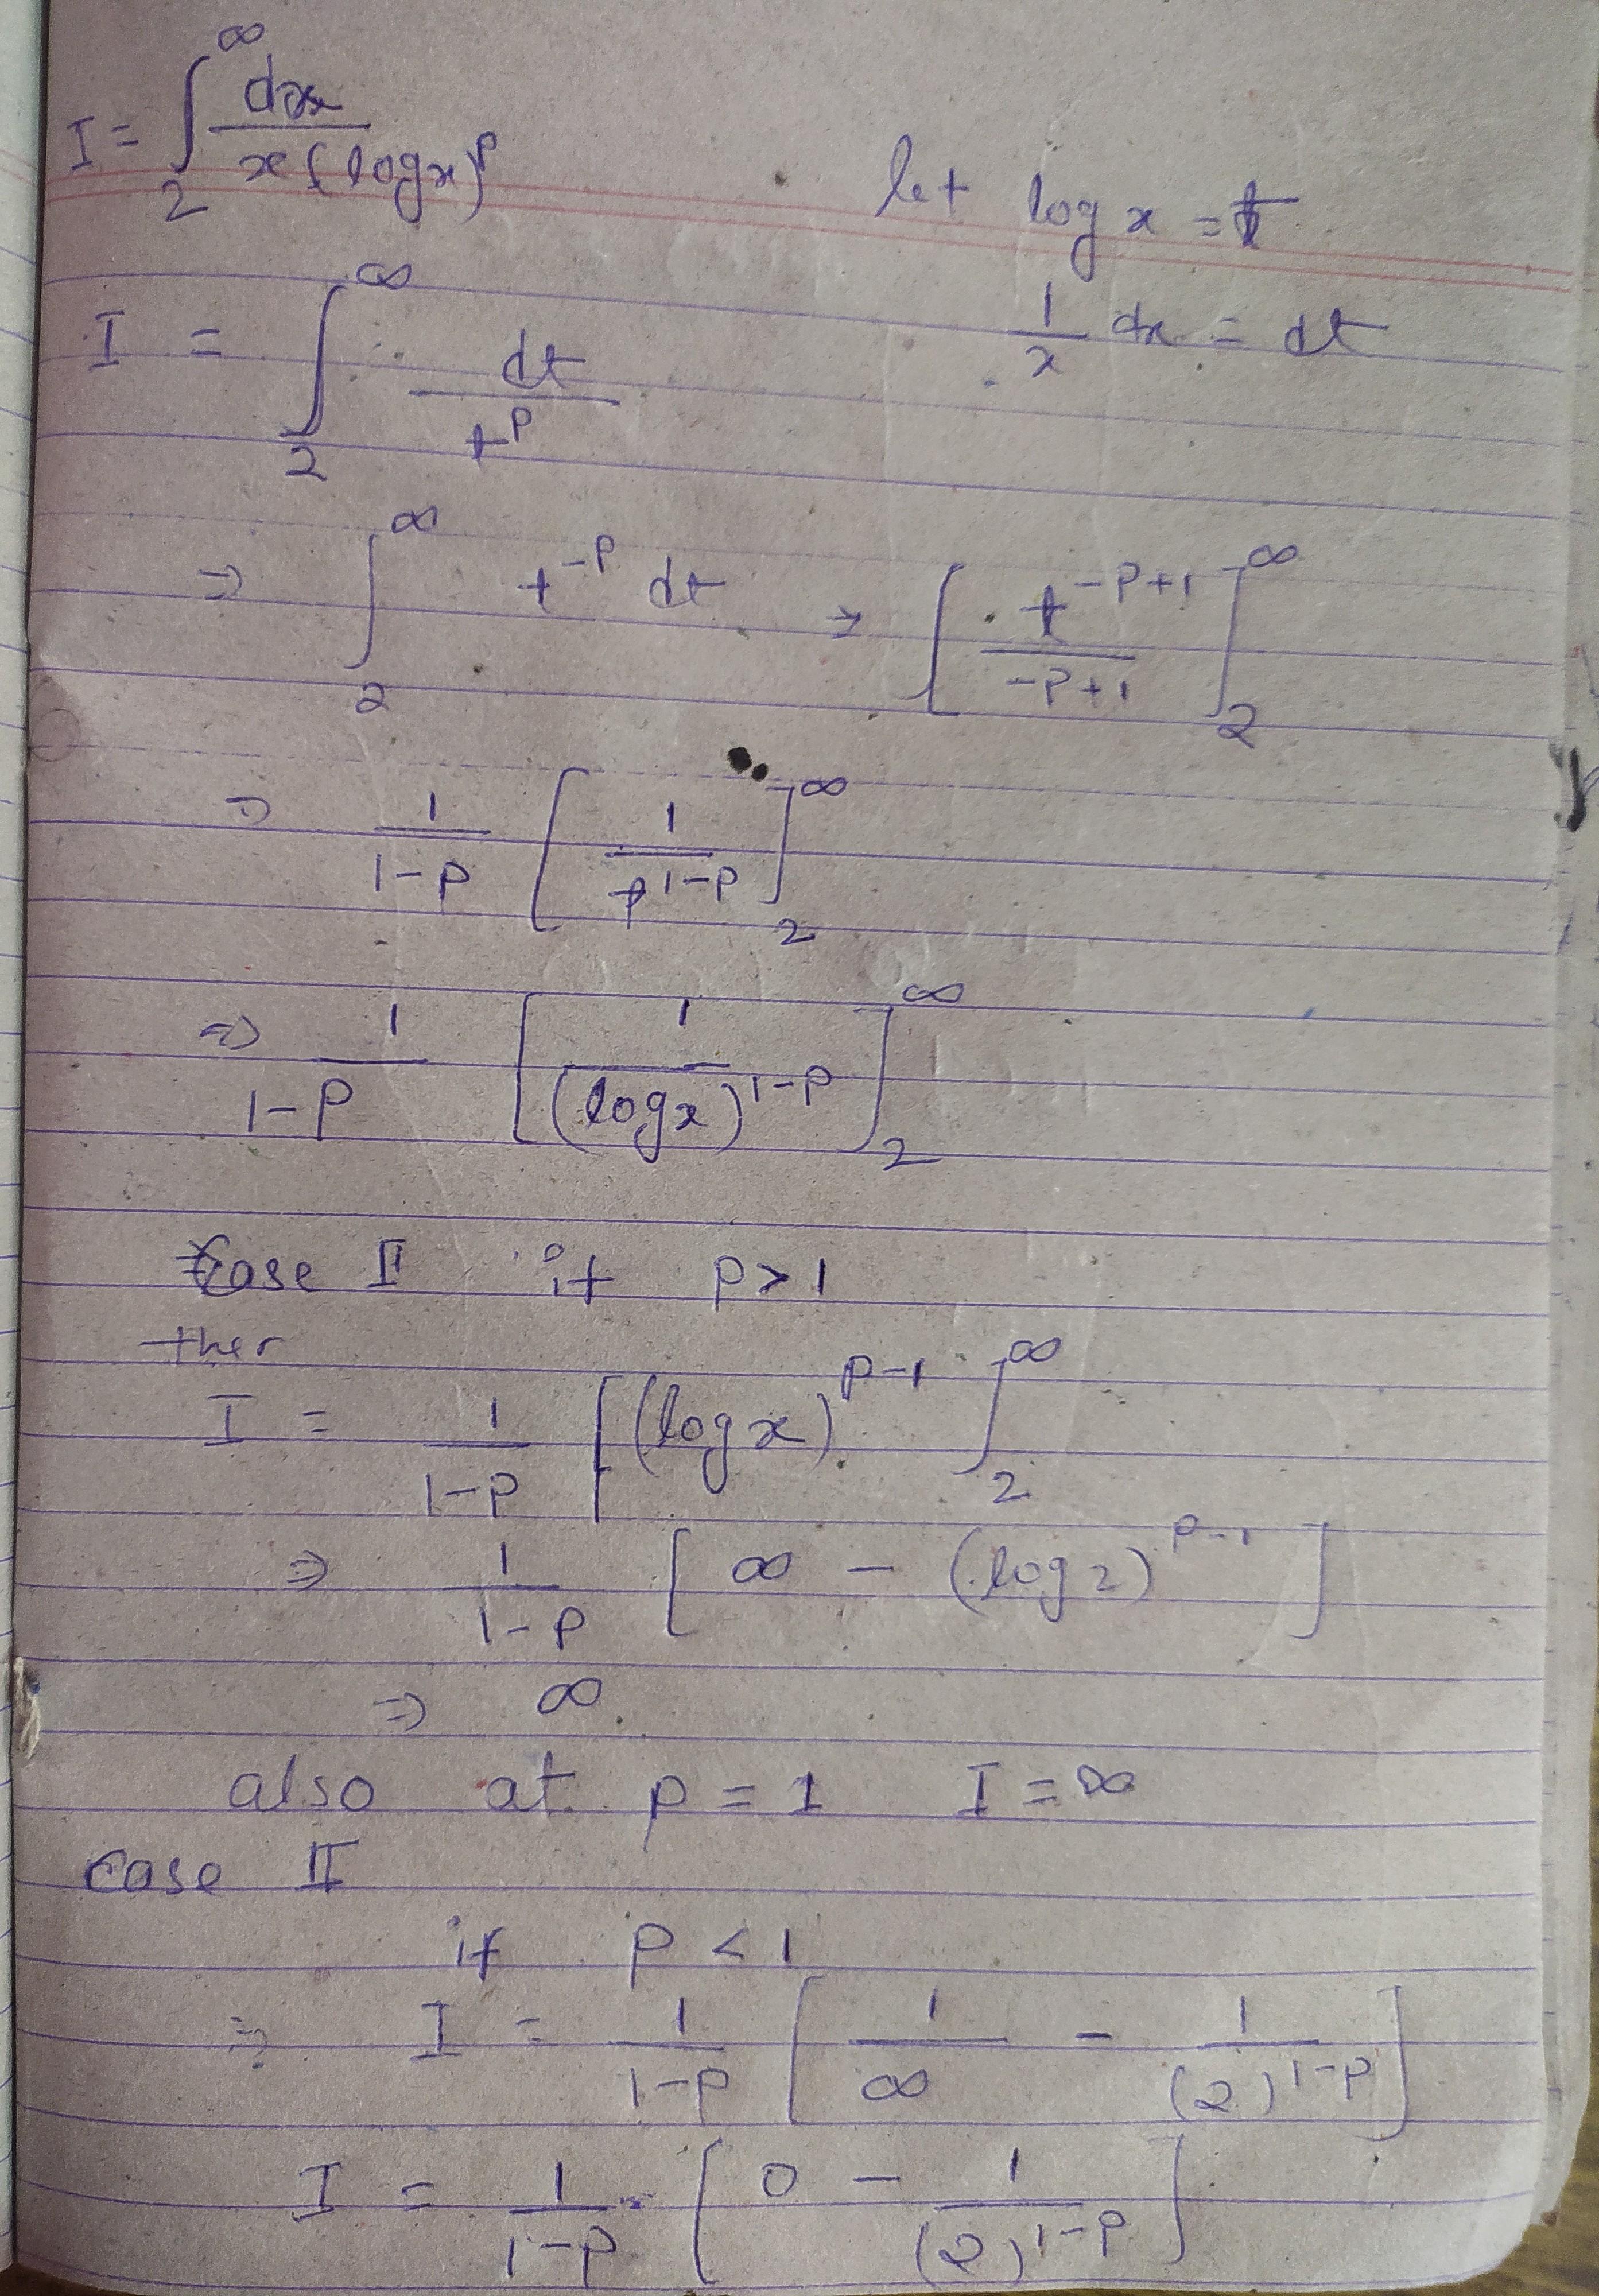 I = ∫₂^∞ dx / x(log x)^p   let log x = t
I = ∫₂^∞ dt / t^p   1/x dx = dt
⇒ ∫₂^∞ t^-p dt → [ t^-p+1 / -p+1 ]₂^∞
⇒ 1/1-p [ 1 / t^1-p ]₂^∞
⇒ 1/1-p [ 1 / (log x)^1-p ]₂^∞
Case I if p > 1
then
I = 1/1-p [ (log x)^p-1 ]₂^∞
⇒ 1/1-p [ ∞ - (log 2)^p-1 ]
⇒ ∞
also at p = 1 I = ∞
case II
if p < 1
⇒ I = 1/1-p [ 1/∞ - 1/(2)^1-p ]
I = 1/1-p [ 0 - 1/(2)^1-p ]